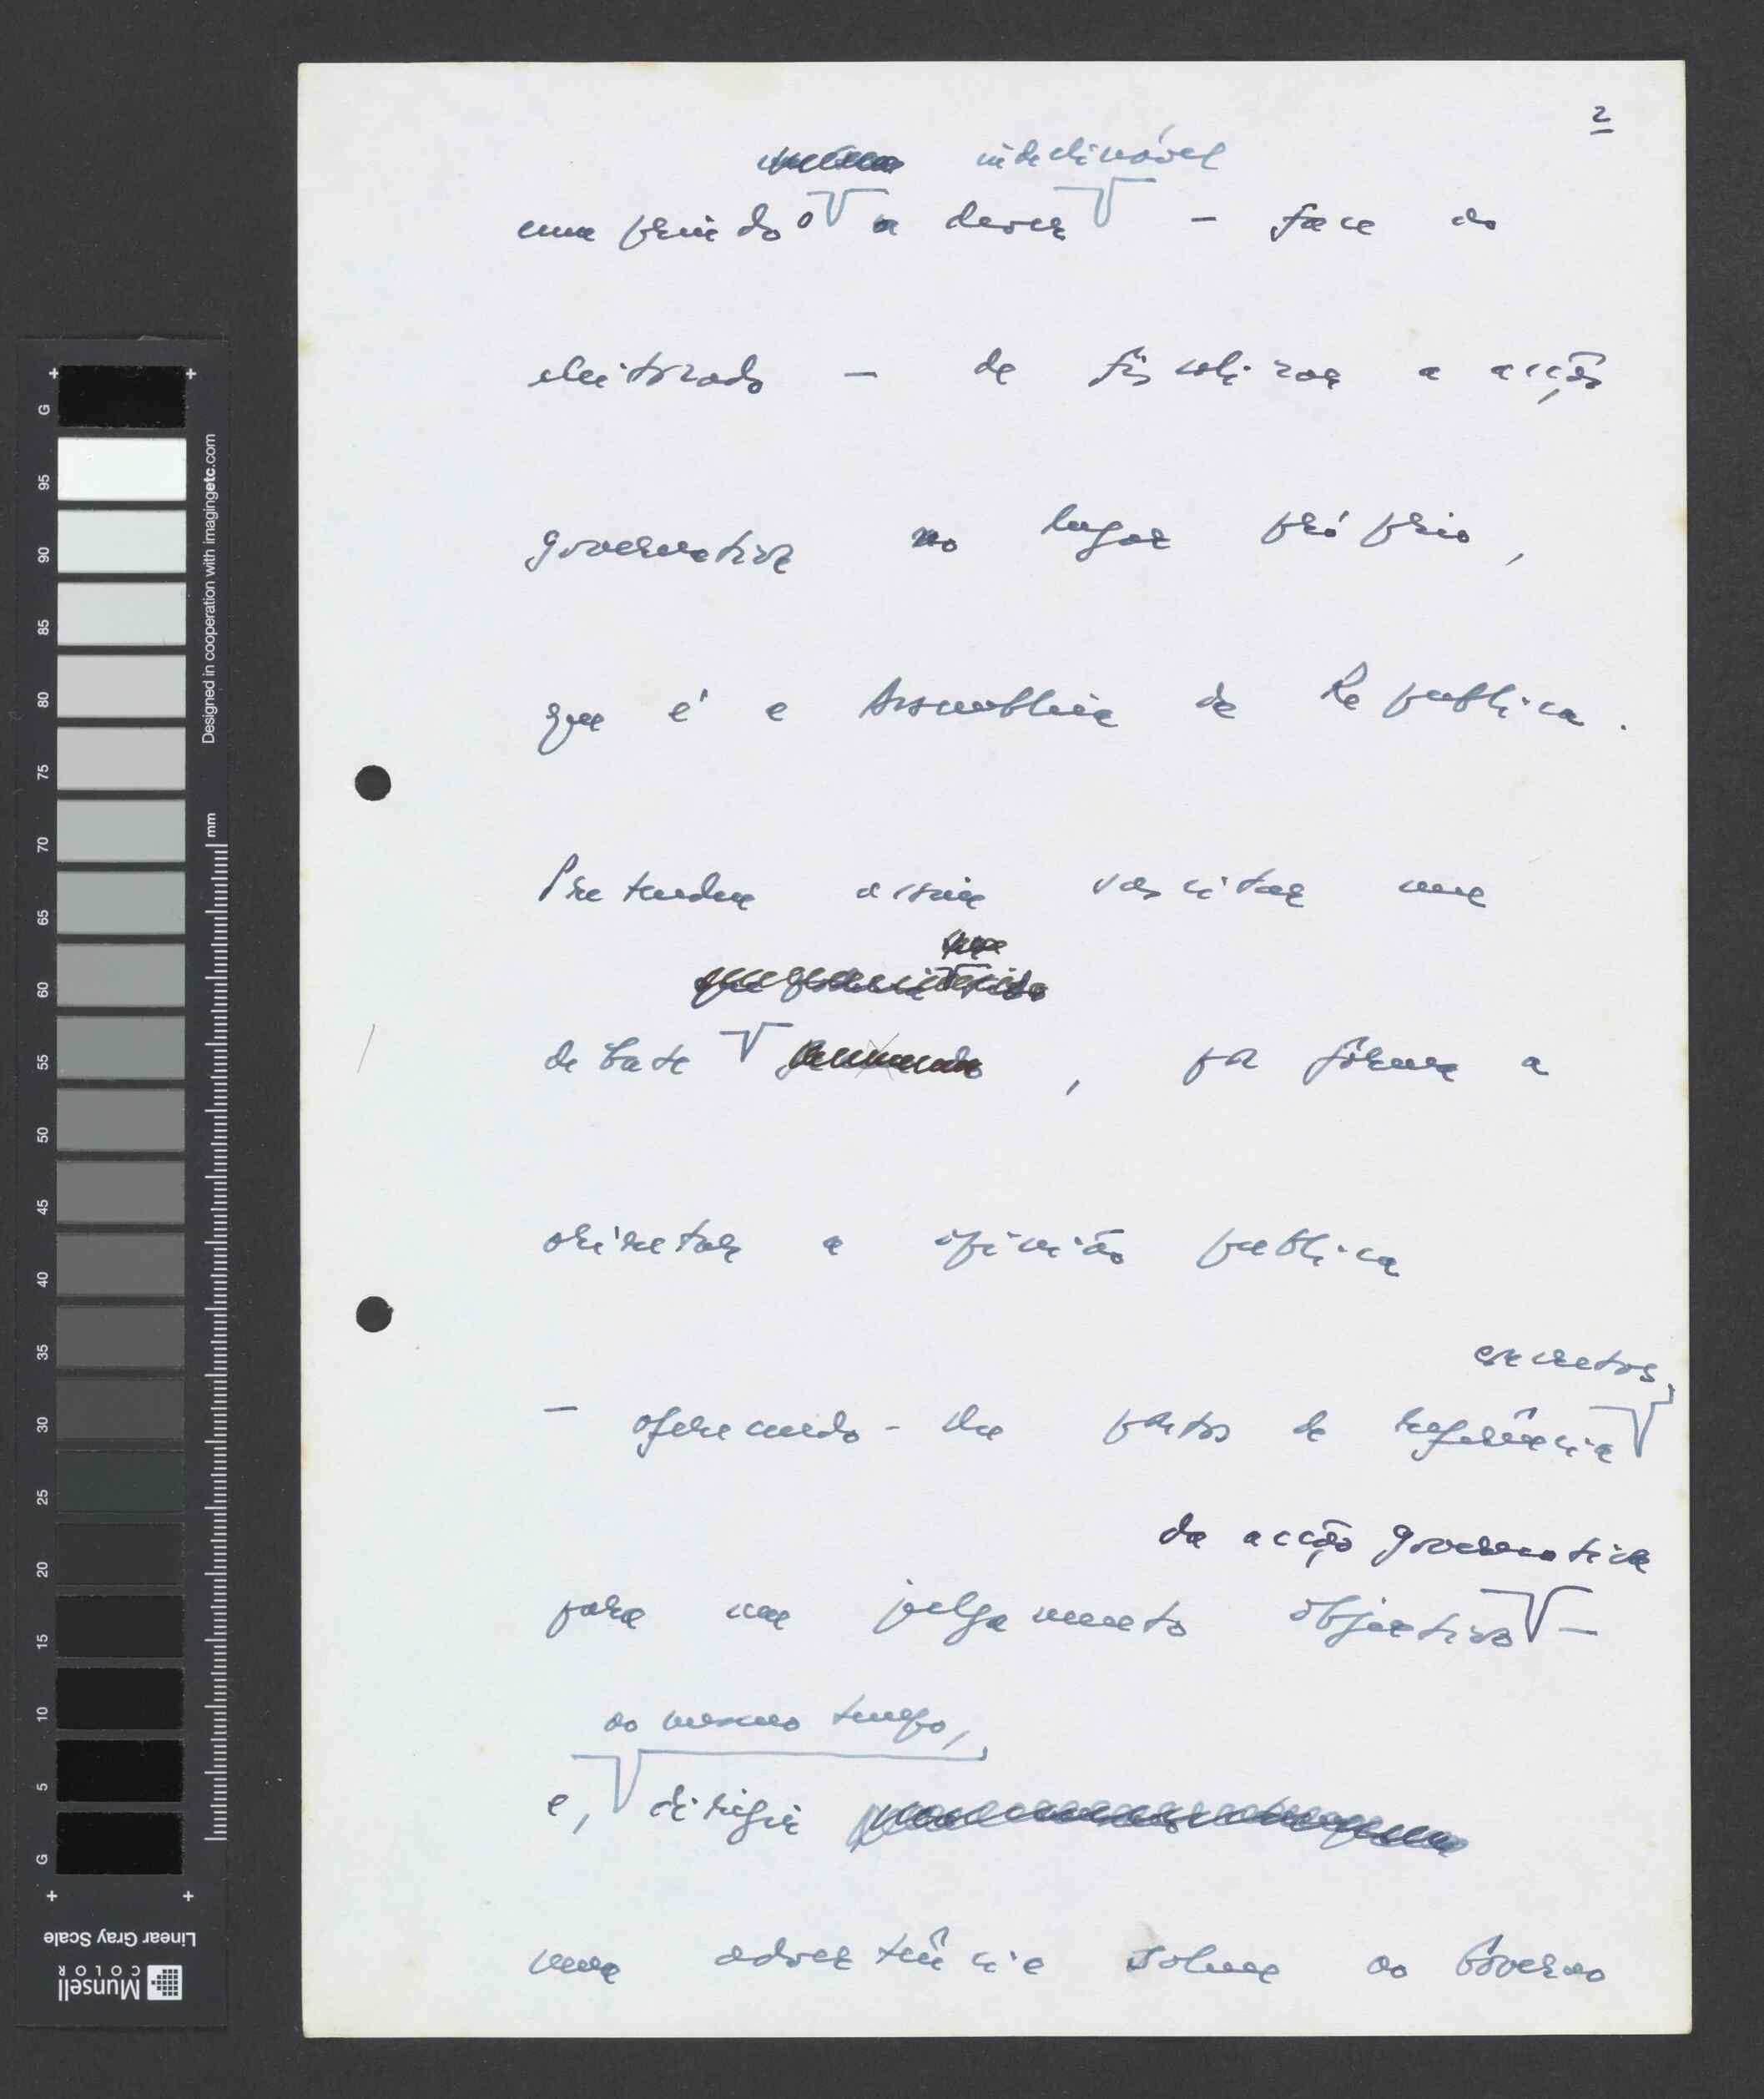 2
indeclinável
cumprindo o dever - face ao
eleitorado - de fiscalizar a acção
governativa no lugar próprio,
que é a Assembleia da Republica.
Pretendem assim suscitar um
debate , por forma a
orientar a opinião publica
concretos,
- oferecendo-lhe pontos de referência
da acção governativa
para um julgamento objectivo -
ao mesmo tempo,
e, dirigir
uma advertência solene ao Governo
G
95
90
85
80
75
70
65
60
55
50
45
40
35
30
25
20
15
10
5
G
mm
Designed in cooperation with imagingetc.com
Linear Gray Scale
Munsell
COLOR